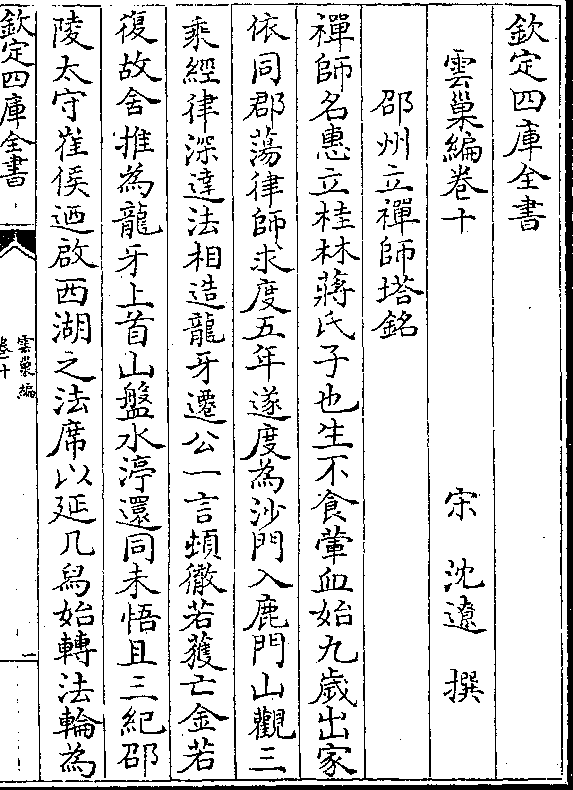 欽定四庫全書
雲巢編卷十
宋 沈遼 撰
邵州立禪師塔銘
禪師名惠立桂林蔣氏子也生不食葷血始九歲出家
依同郡蕩律師求度五年遂度為沙門入鹿門山觀三
乘經律深達法相造龍牙遷公一言頓徹若獲亡金若
復故舍推為龍牙上首山盤水渟還同未悟且三紀邵
陵太守崔侯迺啟西湖之法席以延几舄始轉法輪為
欽定四庫全書
雲巢編
卷十
一